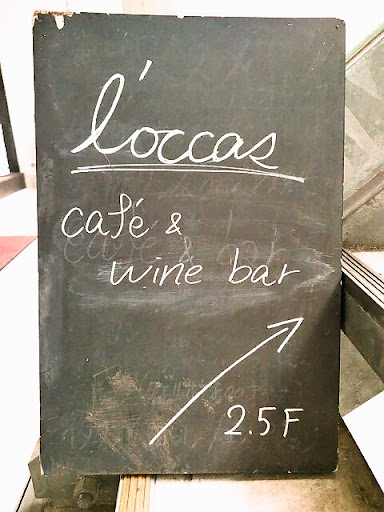 l'occas
café &
wine bar
2.5F